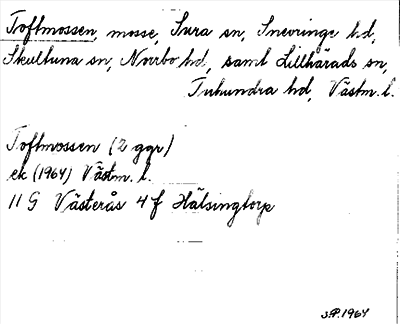 Toftmossen, mosse, Sura sn, Snevringe hd,
Skultuna sn, Norrbo hd, samt Lillhärads sn,
Tuhundra hd, Västm. l.
Toftmossen (2 ggr)
ek (1964) Västm. l.
11 G Västerås 4 f Hälsingtorp
J.P. 1964